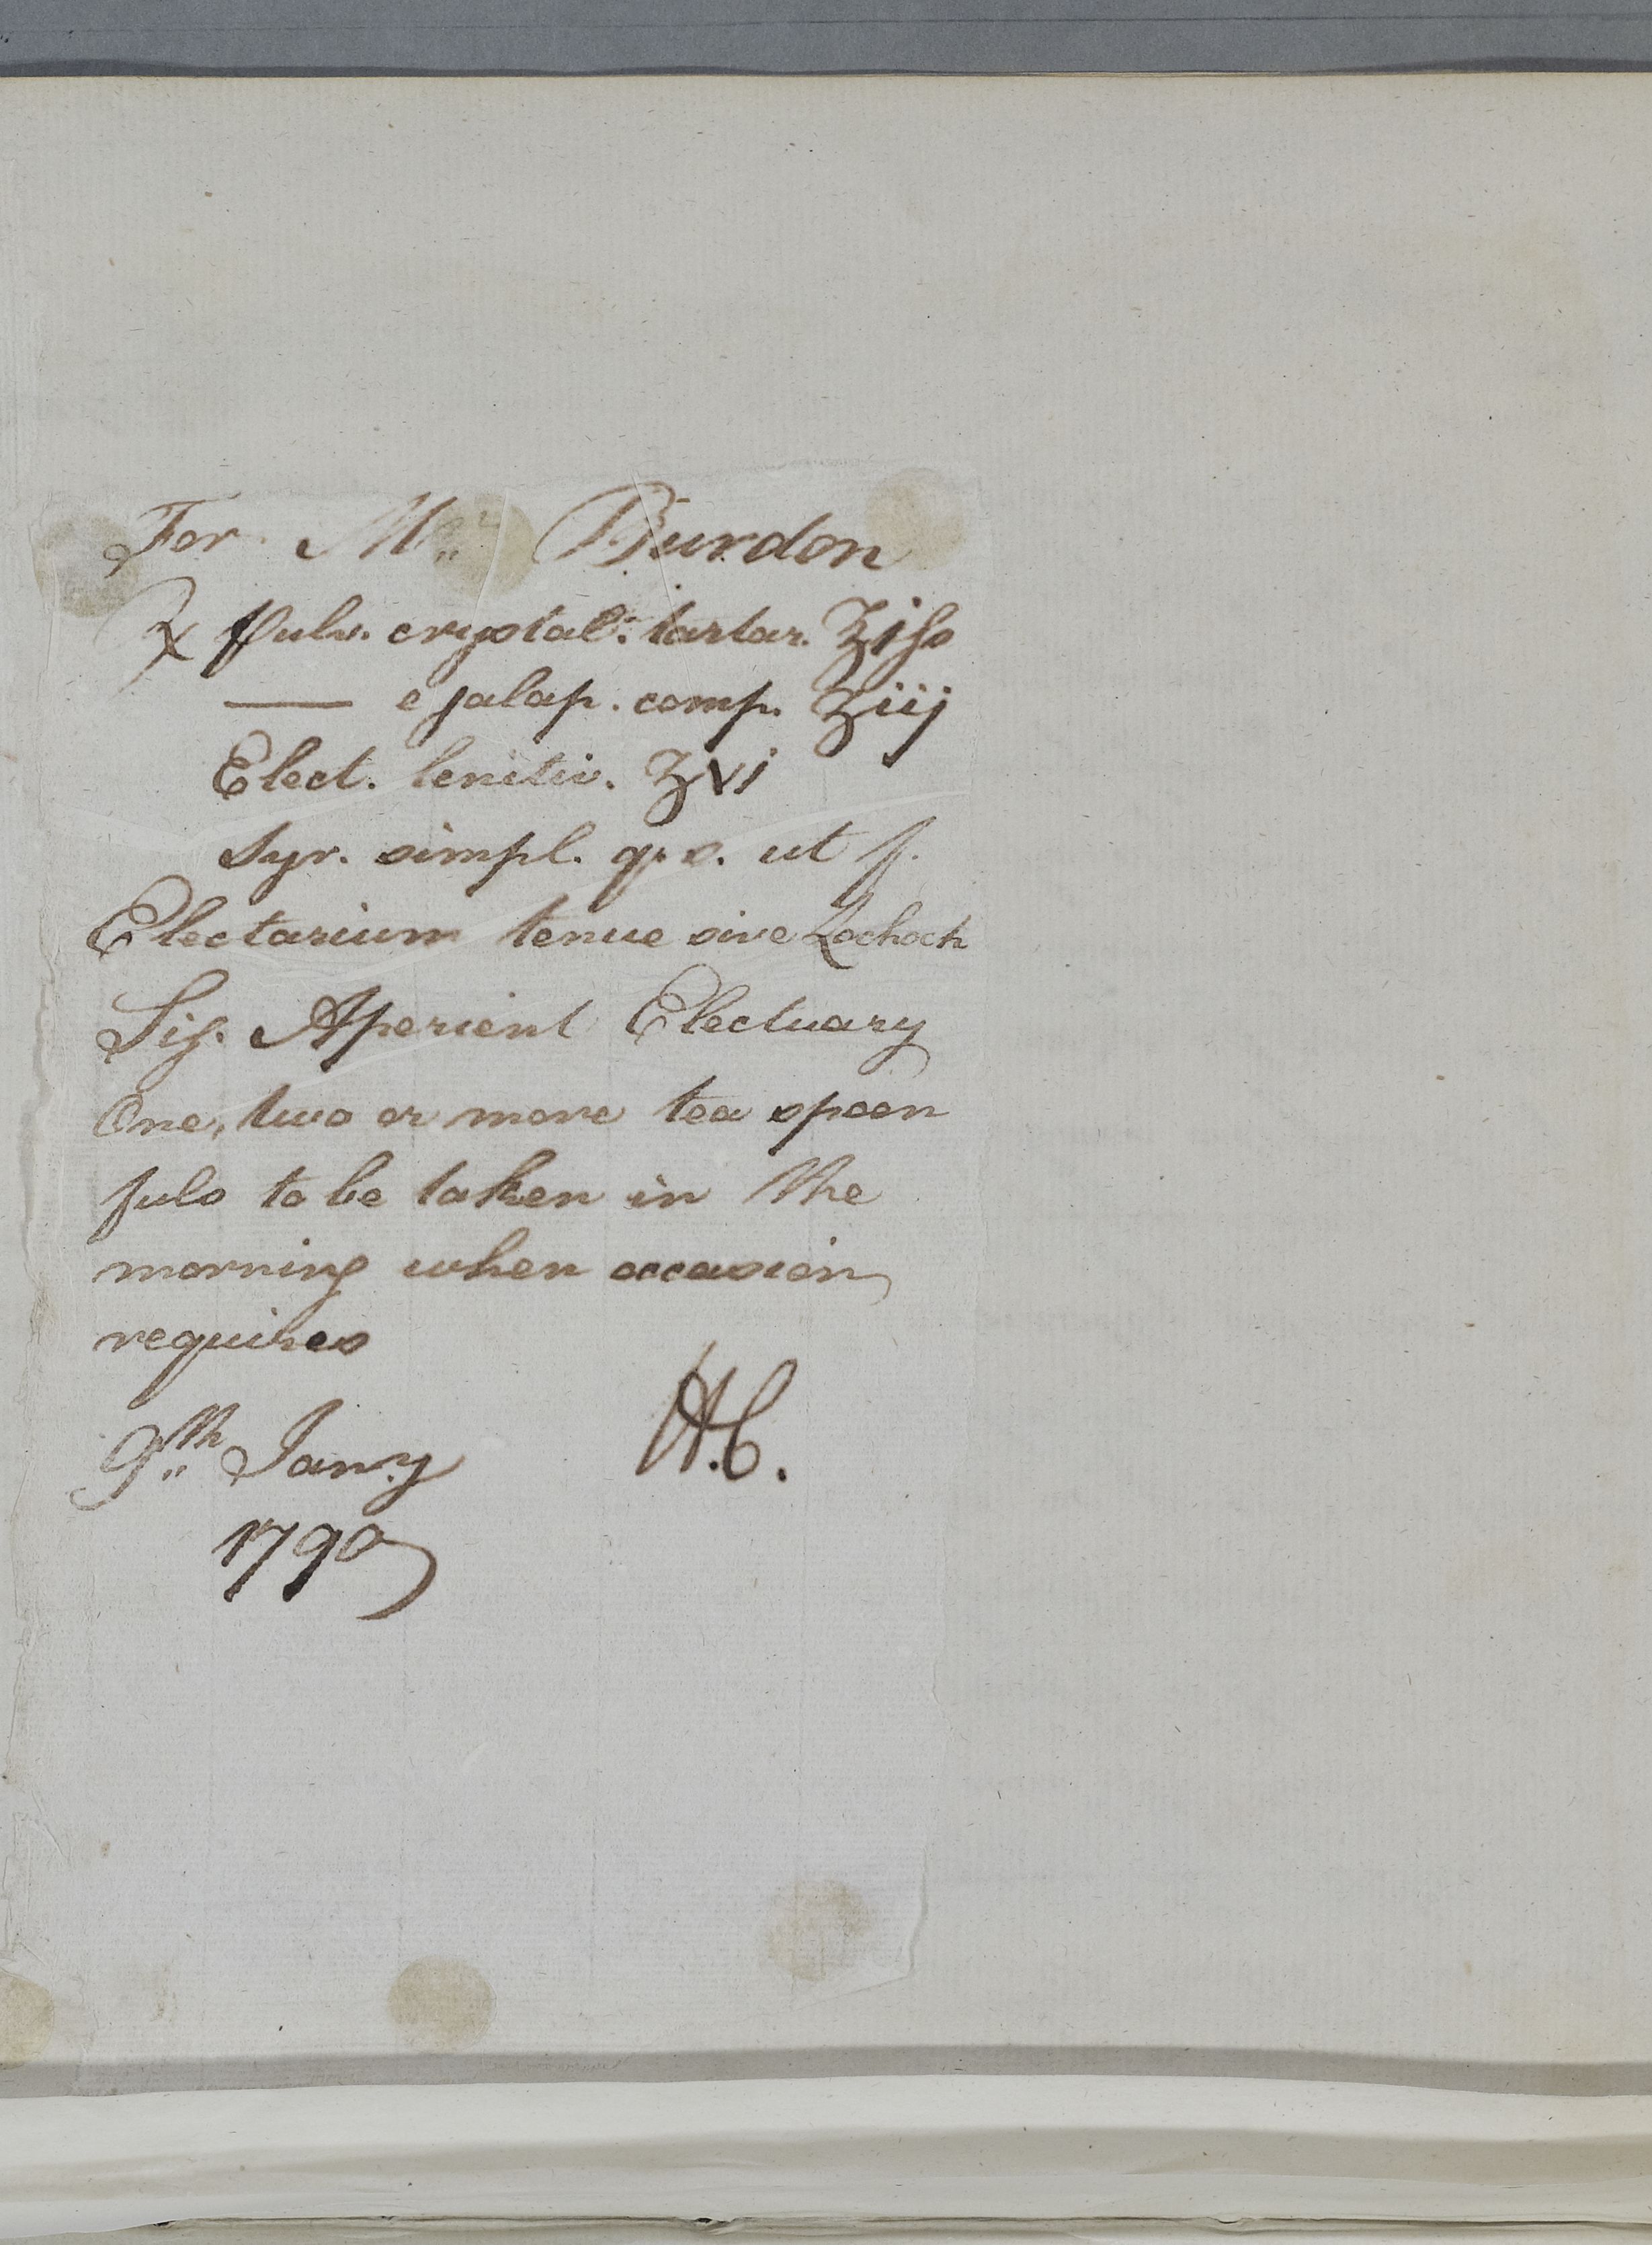 For Mr Burdon
℞ Pulv. crystal: tartar. ℥jſs
—— e jalap. comp. ʒiij
Elect. lenitiv. ʒvj
Syr. simpl. q. s. ut f.
Electarium tenue sive Lochoch
Sig. Aperient Electuary
One, two or more tea spoon
fuls to be taken in the
morning when occasion
requires
9th Jany H.C.
1790